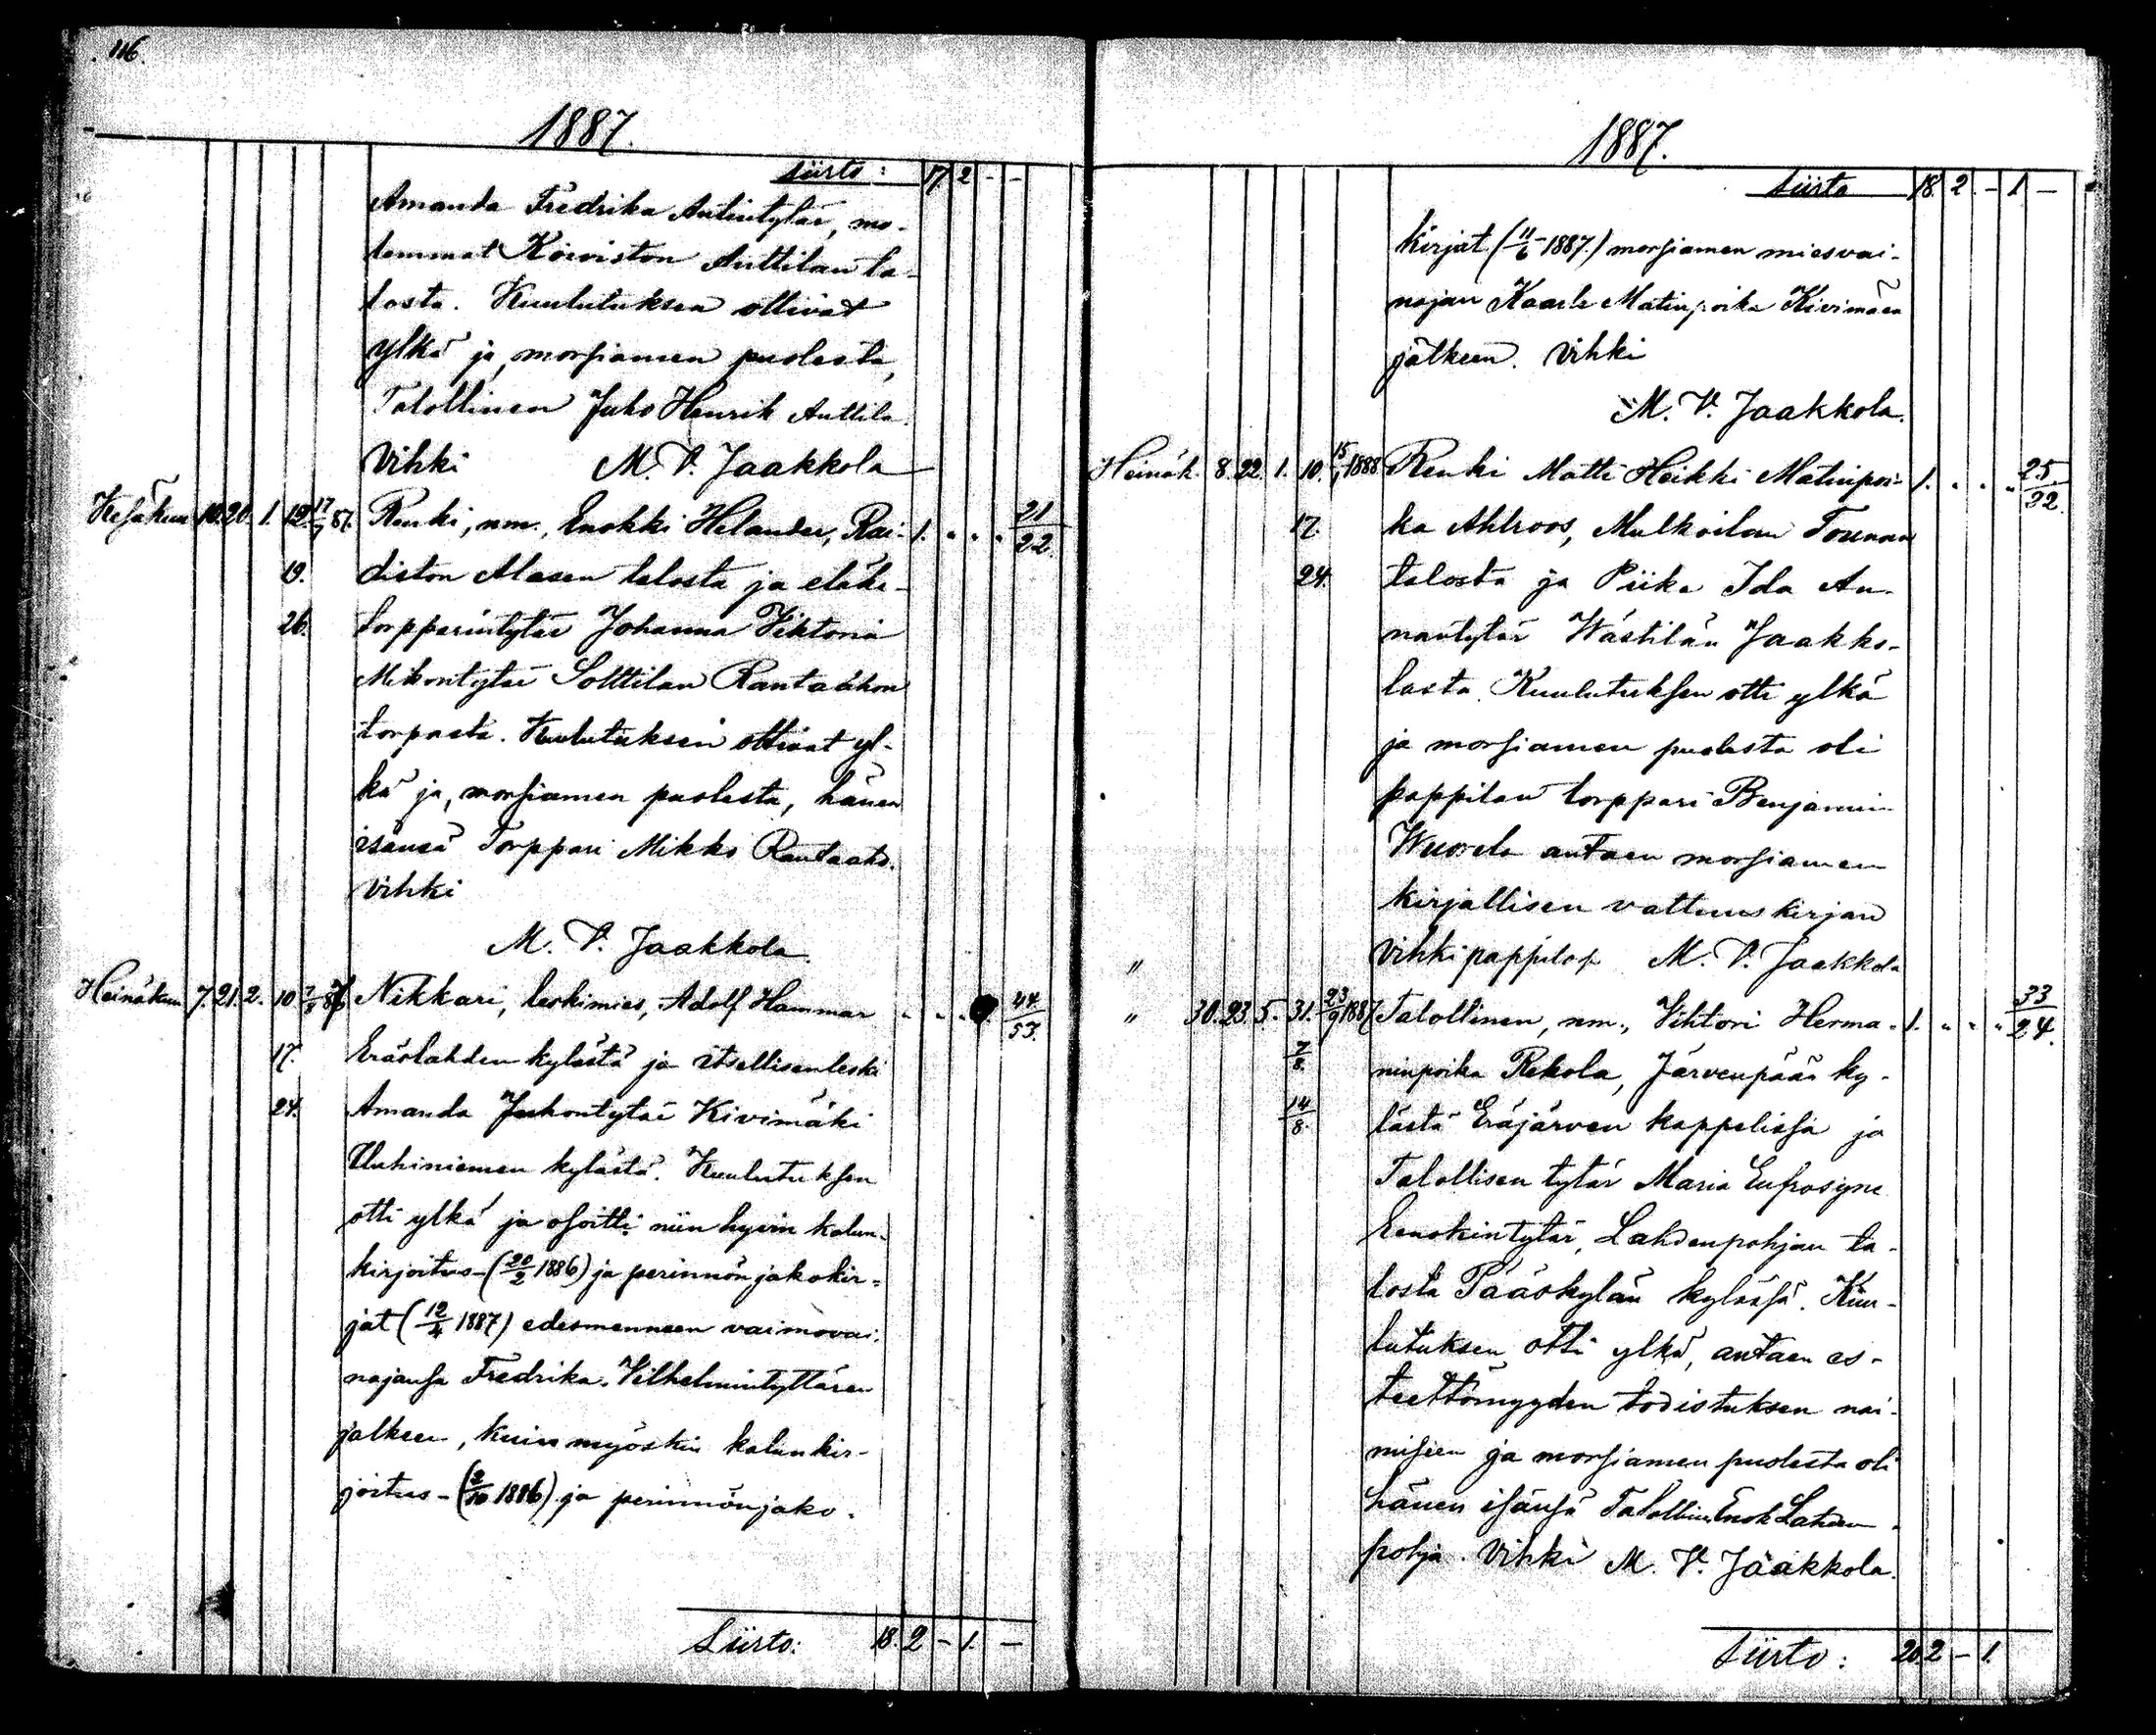 116.
1887.
Siirto: 17 2 - -
Amanda Fredrika Antintytär, mo-
lemmat Koiviston Anttilan ta-
losta. Kuulutuksen ottivat
ylkä ja, morsiamen puolesta,
Talollinen Juho Henrik Anttila.
Vihki M. V. Jaakkola
Kesäkuu 10. 20. 1. 12. 17/7 87. Renki, nm., Enokki Helander, Rai- 1. " " " 21/22.
19. diston Alasen talosta ja eläke-
26. torpparintytär Johanna Viktoria
Mikontytär Solttilan Rantaahon
torpasta. Kuulutuksen ottivat yl-
kä ja, morsiamen puolesta, hänen
isänsä Torppari Mikko Rantaaho.
Vihki
M. V. Jaakkola.
Heinäkuu 7. 21. 2. 10 87 Nikkari, leskimies, Adolf Hammar " " " 44/53.
17. Eräslahden kylästä ja itsellisenleski
24. Amanda Juhontytär Kivimäki
Uuhiniemen kylästä. Kuulutuksen
otti ylkä ja osoitti niin hyvin kalun-
kirjoitus- (20/2 1886) ja perinnönjakokir-
jat (12/4 1887) edesmenneen vaimovai-
najansa Fredrika Vilhelmintyttären
jälkeen, kuin myöskin kalunkir-
joitus- (2/10 1886) ja perinnönjako-
Siirto: 18. 2 - 1. -
1887.
Siirto 18. 2. - 1 -
kirjat (11/6 1887.) morsiamen miesvai-
najan Kaarle Matinpoika Kivimäen
jälkeen. Vihki
M. V. Jaakkola.
Heinäk. 8. 22. 1. 10. 15/1 1888 Renki Matti Heikki Matinpoi- 1. " " " 25/32.
17. ka Ahlroos, Mulkoilan Tounnan
24. talosta ja Piika Ida An-
nantytär Västilän Jaakko-
lasta. Kuulutuksen otti ylkä
ja morsiamen puolesta oli
pappilan torppari Benjamin
Wuorela antaen morsiamen
kirjallisen valtuuskirjan
" Vihki pappilas M. V. Jaakkola
" 30. 23. 5. 31. 23/9 1887 Talollinen, nm., Vihtori Herma- 1. " " " 33/24.
7/8. ninpoika Rekola, Järvenpään ky-
14/8. lästä Eräjärven kappelissa ja
Talollisen tytär Maria Eufrosyne
Eenokintytär, Lahdenpohjan ta-
losta Pääskylän kylässä. Kuu-
lutuksen otti ylkä, antaen es-
teettömyyden todistuksen nai-
miseen ja morsiamen puolesta oli
hänen isänsä Talollin. Enok Lahden-
pohja. Vihki M. V. Jaakkola.
Siirto: 20. 2 - 1.